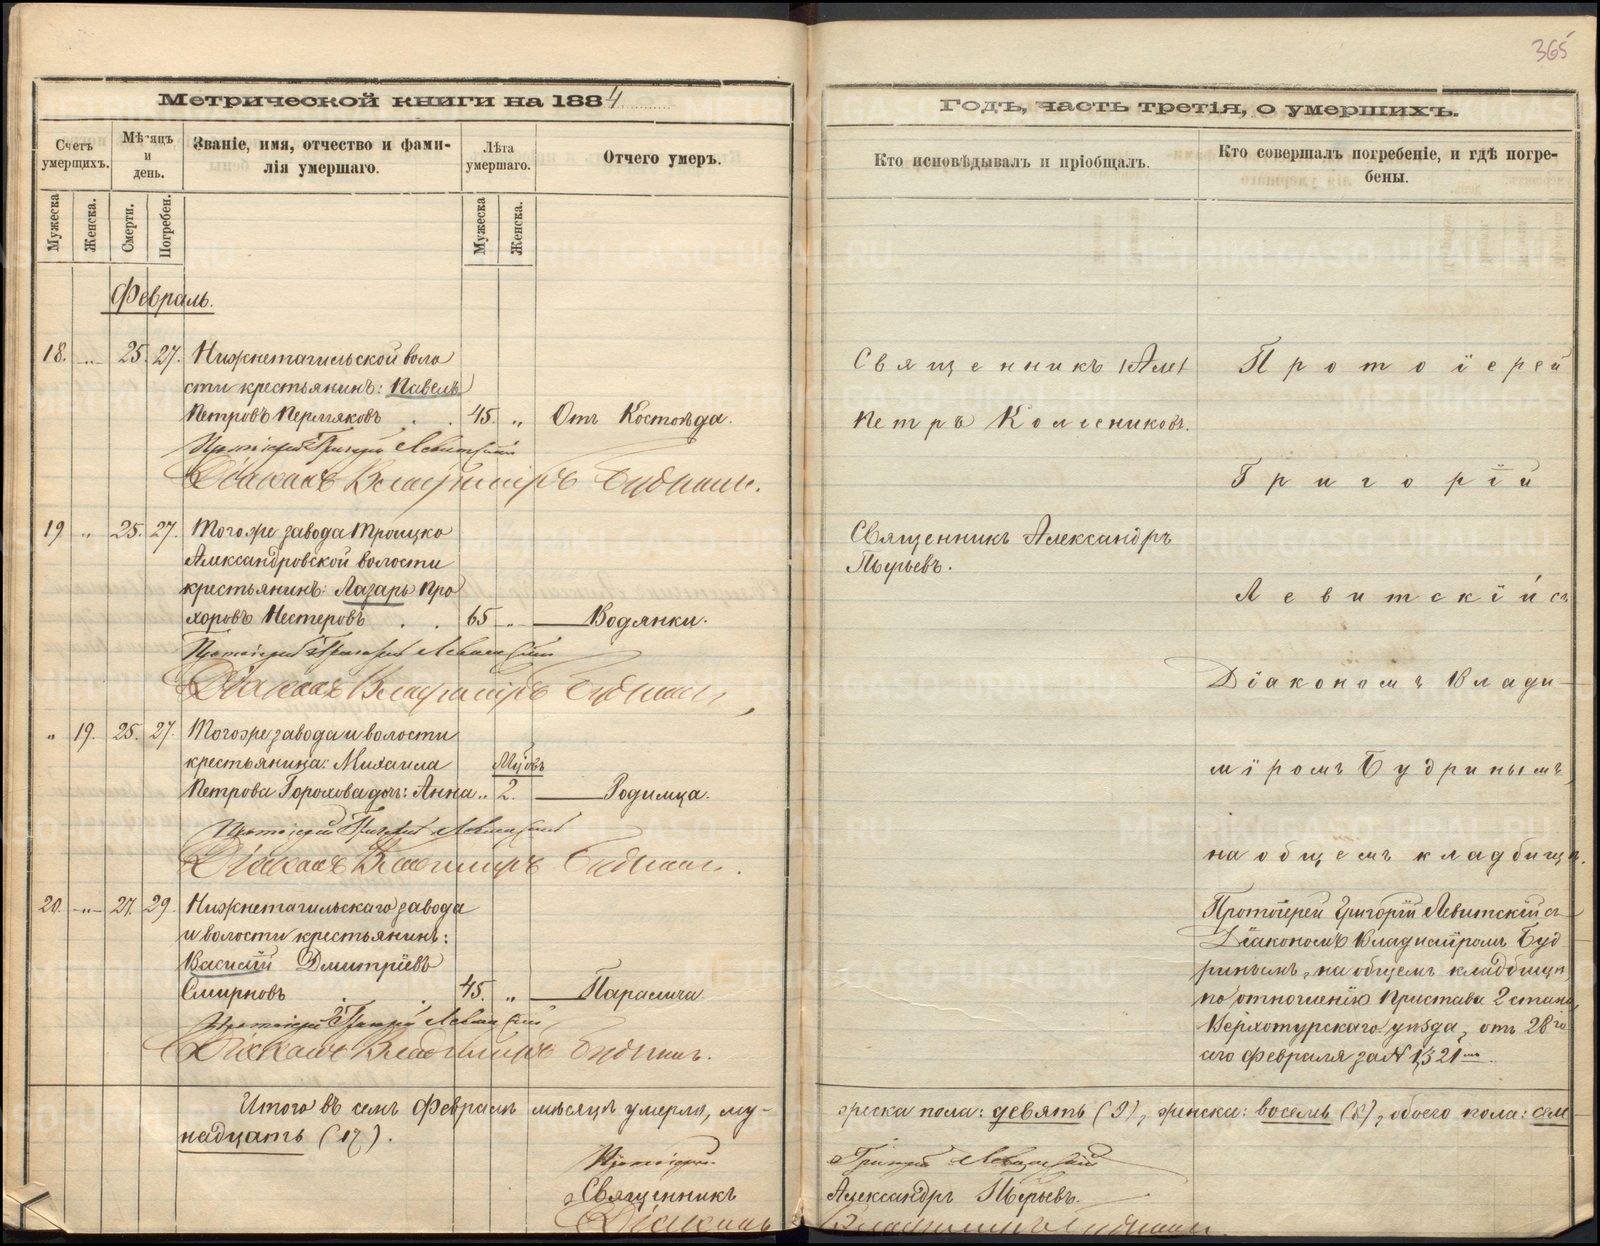 365
Метрической книги на 1884
Годъ, часть третія, о умершихъ.
Счетъ умершихъ.
Мѣсяцъ и день.
Званіе, имя, отчество и фами-
лія умершаго.
Лѣта умершаго.
Отчего умеръ.
Кто исповѣдывалъ и пріобщалъ.
Кто совершалъ погребеніе, и гдѣ погре-
бены.
Мужеска
Женска.
Смерти.
Погребен.
Мужеска
Женска.
Февраль.
18. " 25. 27. Нижнетагильской воло
сти крестьянинъ: Павелъ
Петровъ Пермяковъ . . 45. " Отъ Костоѣда.
Протоіерей Григорій Левитскій
Діаконъ Владиміръ Будринъ.
Священникъ
Петръ Колесниковъ.
19 " 25. 27. Тогоже завода Троицко
Александровской волости
крестьянинъ: Лазарь Про
хоровъ Нестеровъ . . 65 " — Водянки.
Протоіерей Григорій Левитскій
Діаконъ Владиміръ Будринъ
Священникъ Александръ
" 19. 25. 27. Тогоже завода и волости
крестьянина: Михаила
Петрова Горохова дочь: Анна " 2. — Родимца.
Протоіерей Григорій Левитскій
Діаконъ Владиміръ Будринъ.
Протоіерей
Григорій
Левитскій съ
Діакономъ Влади
міромъ Будринымъ
на общемъ кладбищѣ.
20. " 27. 29. Нижнетагильскаго завода
и волости крестьянинъ:
Василій Дмитріевъ
Смирновъ . . 45. " — Паралича.
Протоіерей Григорій Левитскій
Діаконъ Владиміръ Будринъ.
Протоіерей Григорій Левитскій съ
Діакономъ Владиміромъ Буд
ринымъ, на общемъ кладбищѣ,
по отношенію Пристава 2 стана,
Верхотурскаго уѣзда, отъ 28го
сего Февраля за № 1321мъ.
Итого въ семъ Февралѣ мѣсяцѣ умерло, му-
жеска пола: девять (9), женска: восемь (8), обоего пола: сем
надцать (17).
Протоіерей Григорій Левитскій
Священникъ Александръ
Діаконъ Владиміръ Будринъ